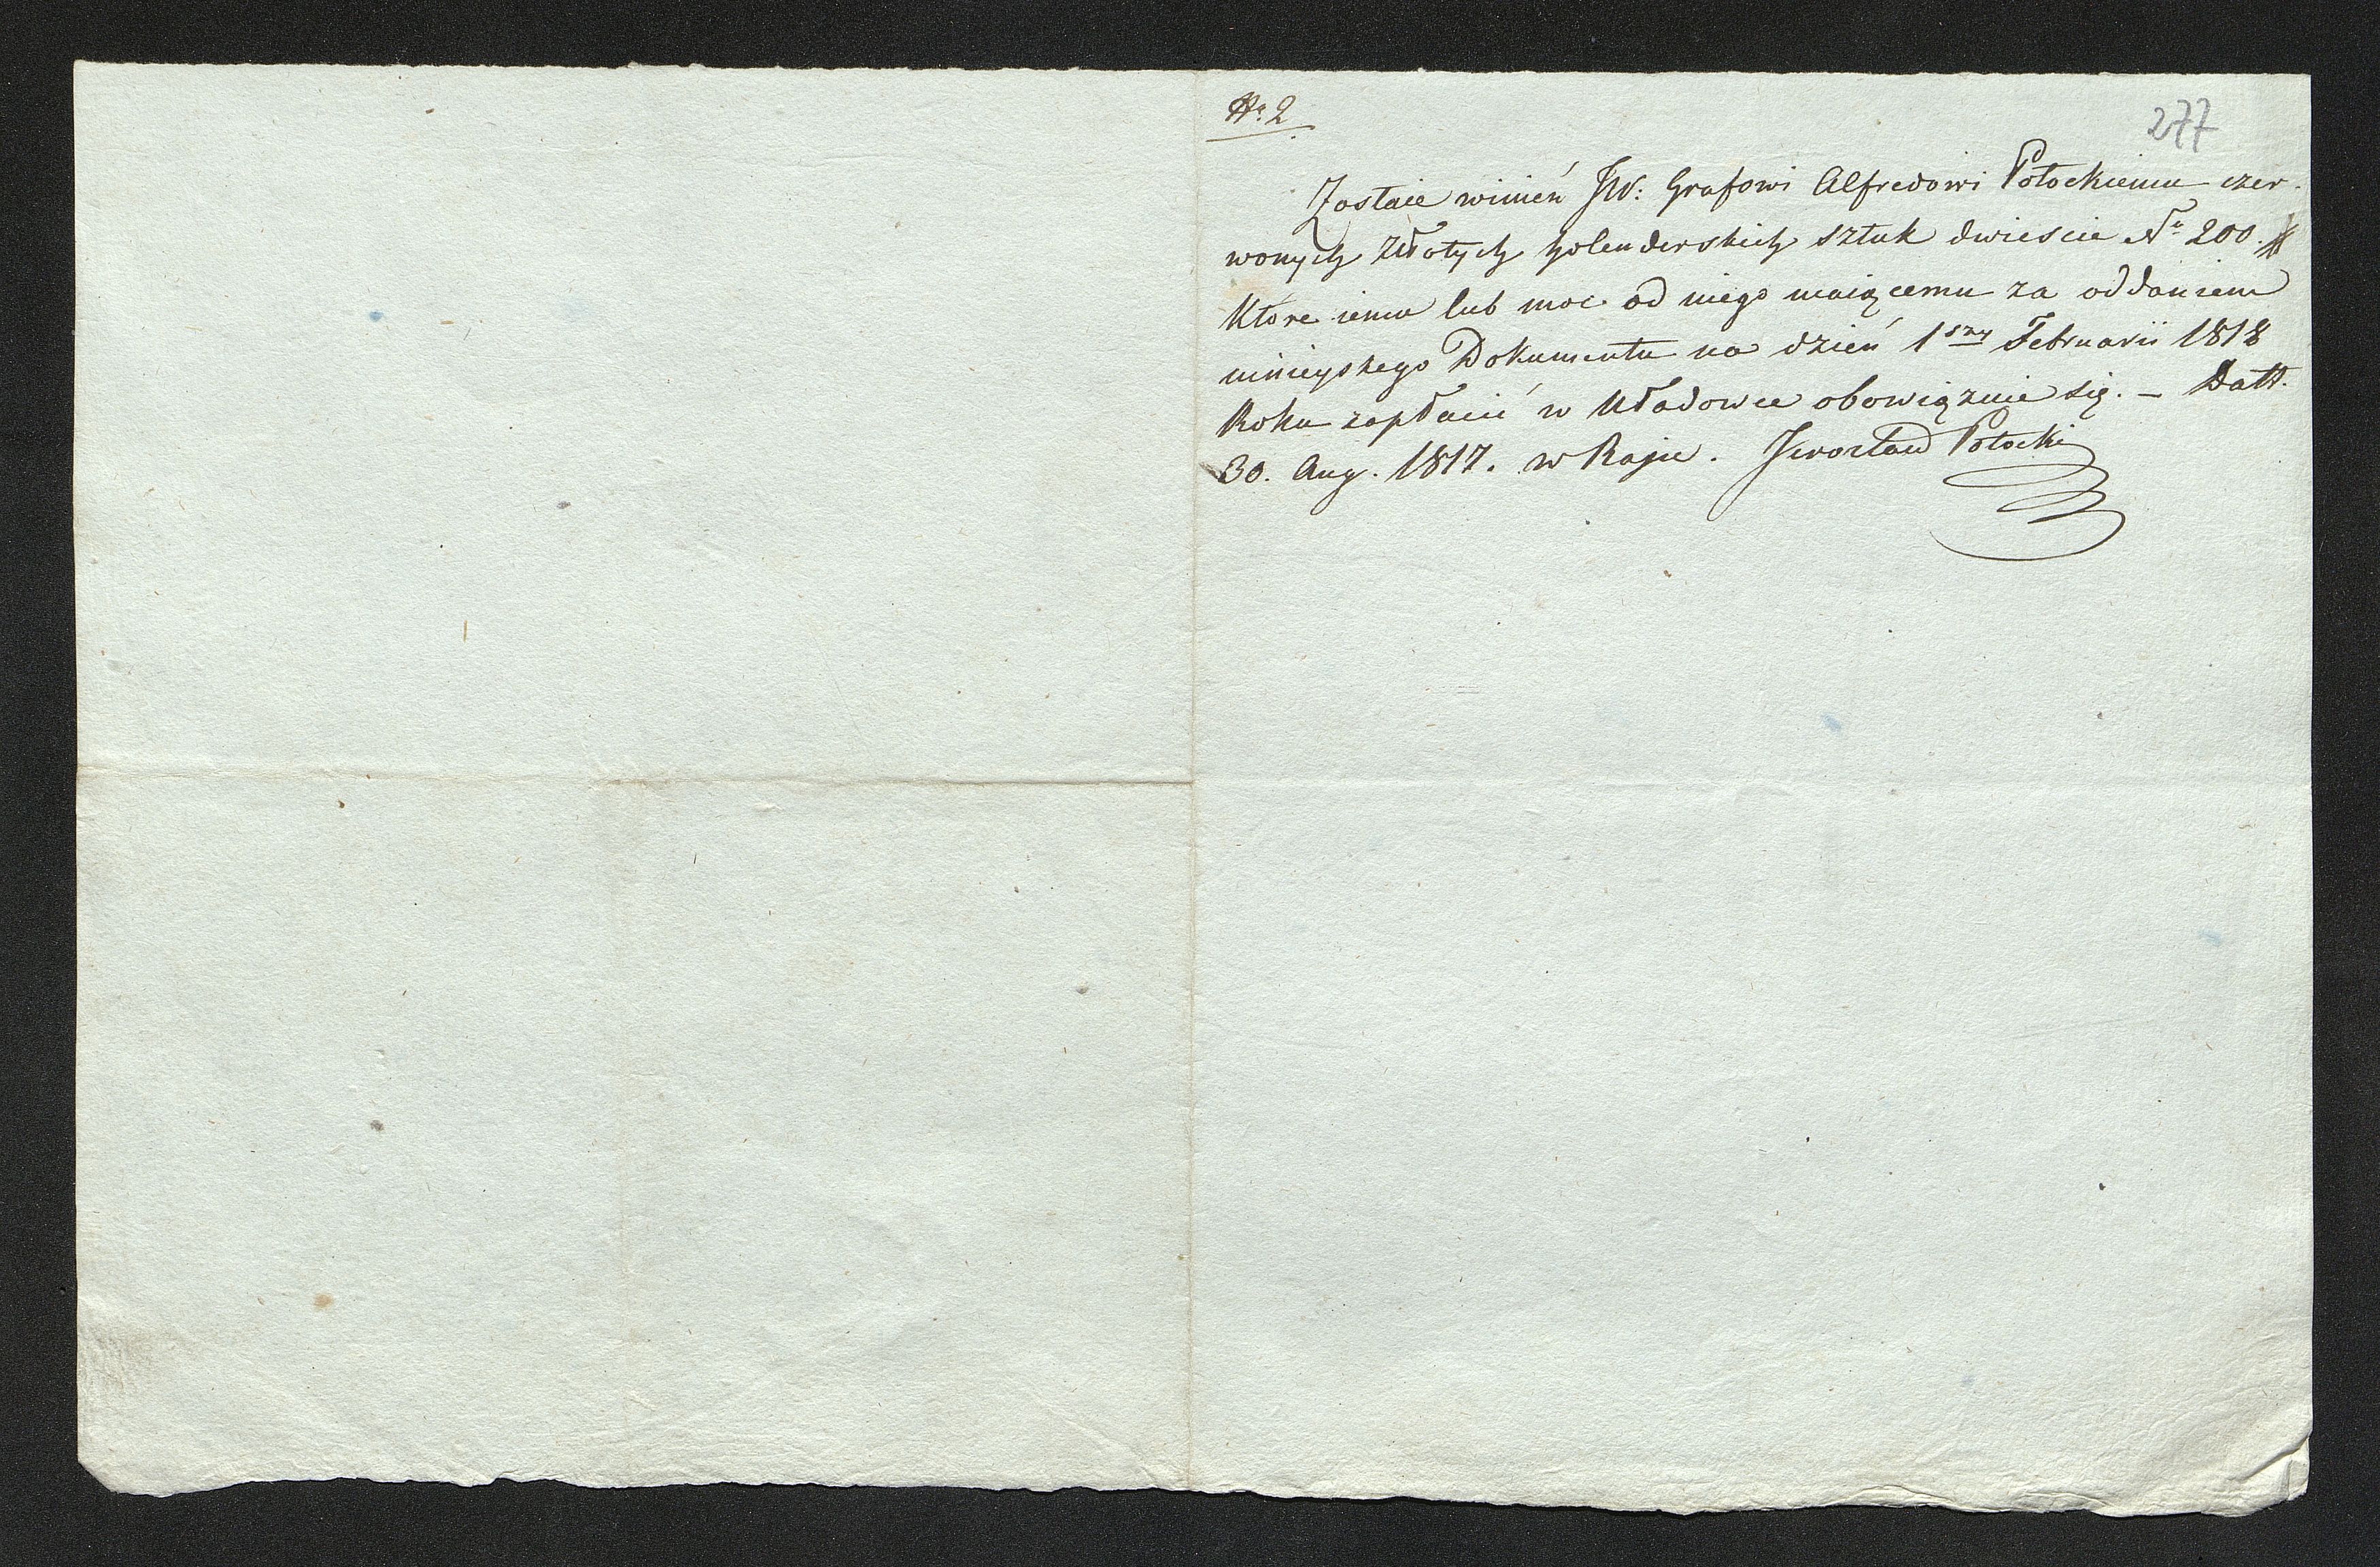 N. 2
277
Zostaie winien JW: Grafowi Alfredowi Potockiemu czer-
wonych złotych holenderskich sztuk dwieście Nº 200. #
które iemu lub moc od niego maiącemu za oddaniem
ninieyszego Dokumentu na dzień 1szy Februarii 1818
Roku zapłacić w Uładowce obowiązuie się. – Datt.
30. Aug. 1817. w Raju. Potocki